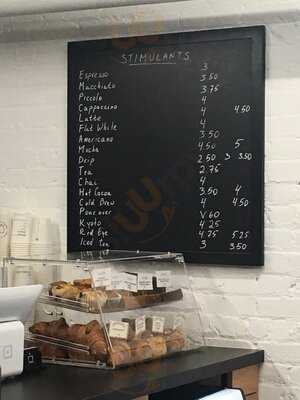 STIMULANTS
Espresso 3
Macchiato 3.50
Piccolo 3.75
Cappuccino 4 4.50
Latte 4
Flat White 4
Americano 3.50
Mocha 4.50 5
Drip 2.50 3 3.50
Tea 2.75
Chai 4
Hot Cocoa 3.50 4
Cold Brew 4 4.50
Pour over V60
Kyoto 4.25
Red Eye 4.75 5.25
Iced Tea 3 3.50